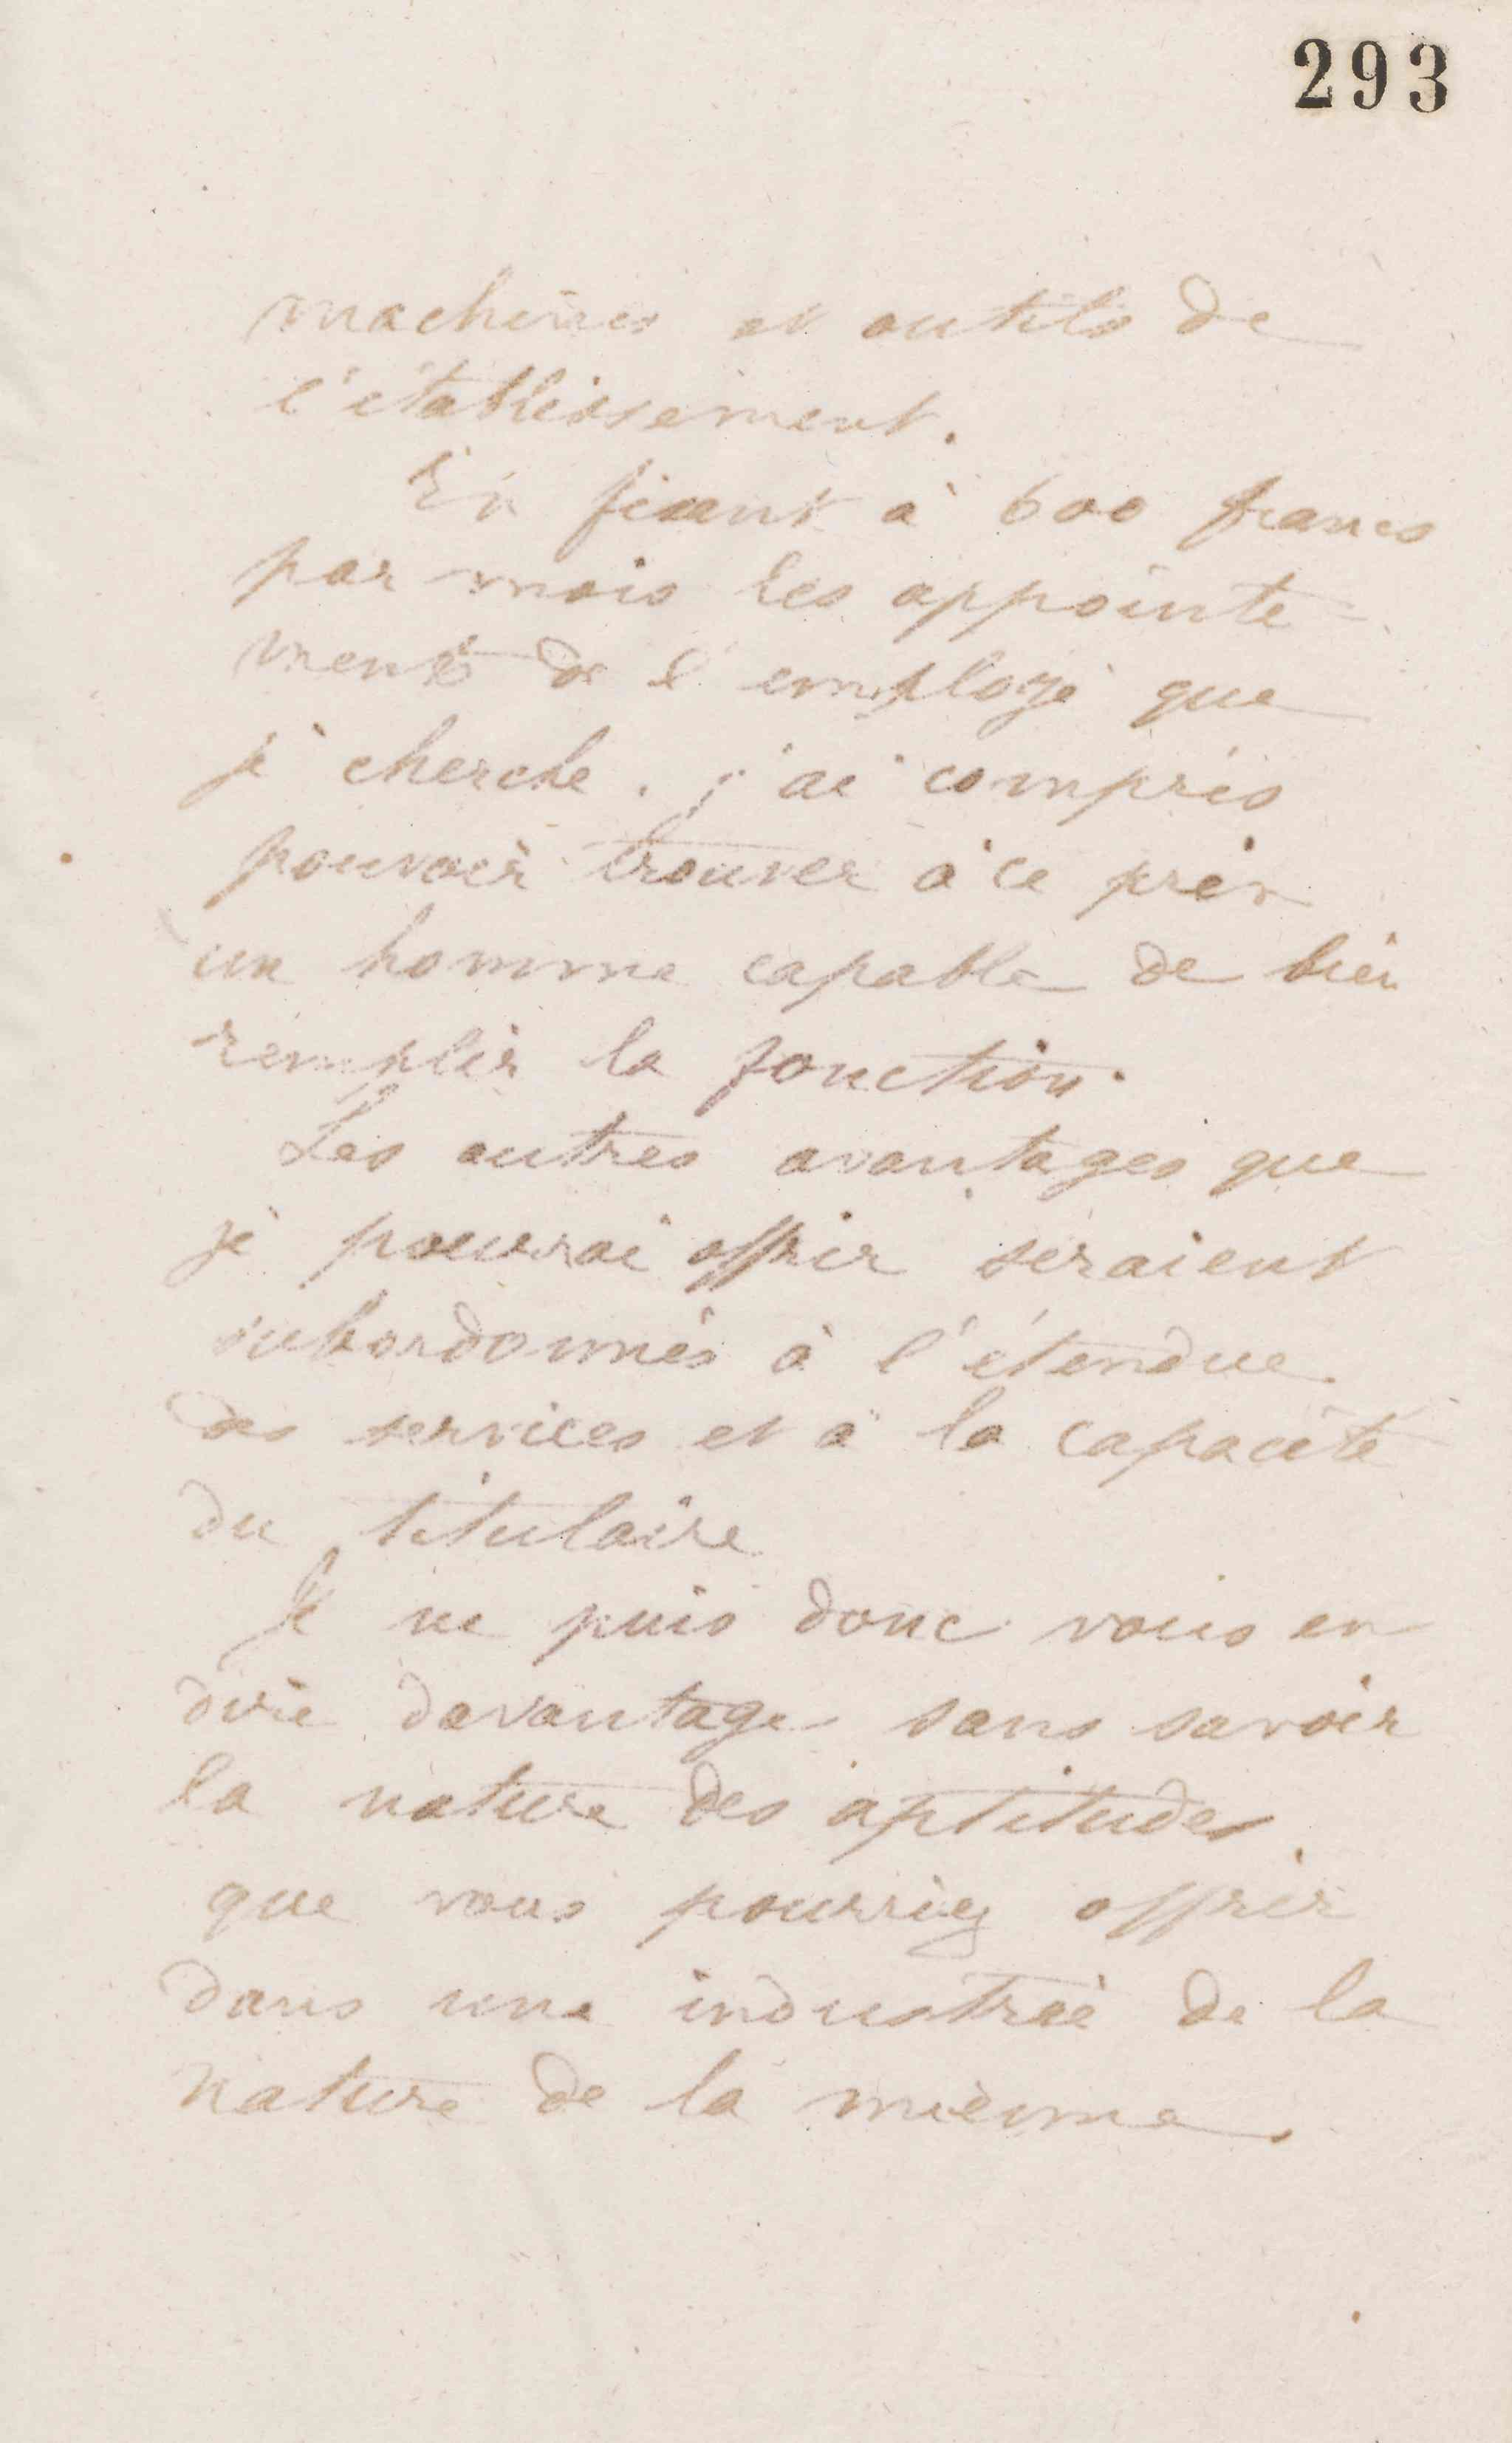 293
machines et outils de
l'établissement.
En fixant à 600 francs
par mois les appointe-
ments de l'employé que
je cherche, j'ai compris
pouvoir trouver à ce prix
un homme capable de bien
remplir la fonction.
Les autres avantages que
je pourrai offrir seraient
subordonnés à l'étendue
des services et à la capacité
du titulaire
Je ne puis donc vous en
dire davantage sans savoir
la nature des aptitudes
que vous pourriez offrir
dans une industrie de la
nature de la mienne.